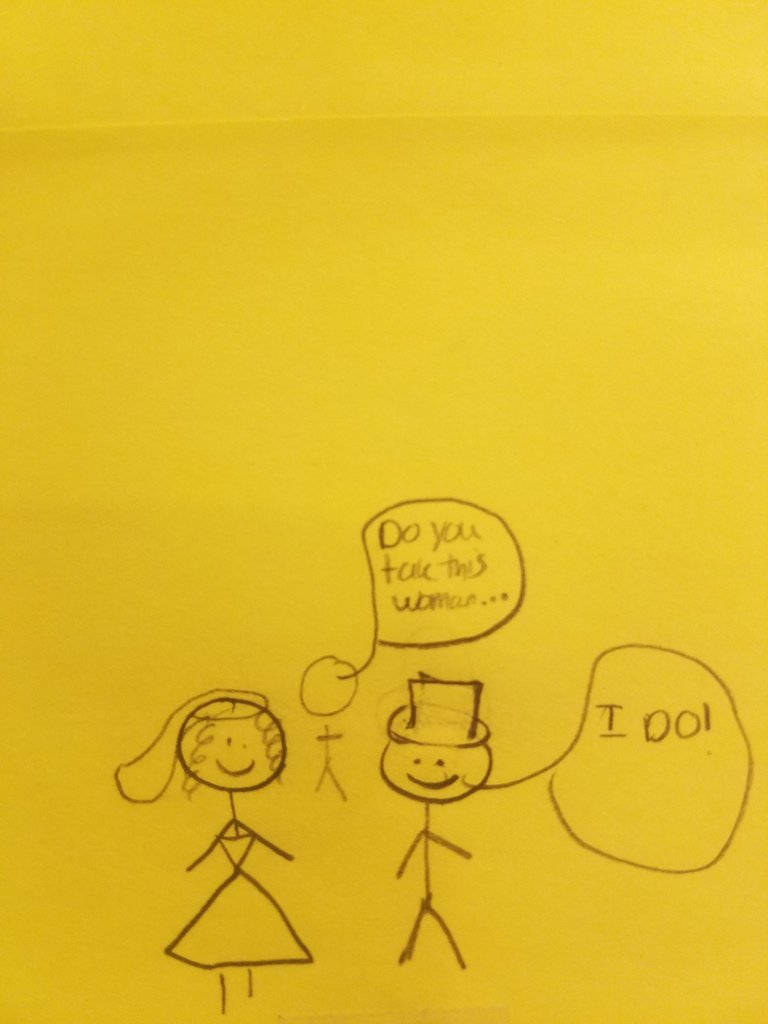 Do you
take this
woman...
I DO!